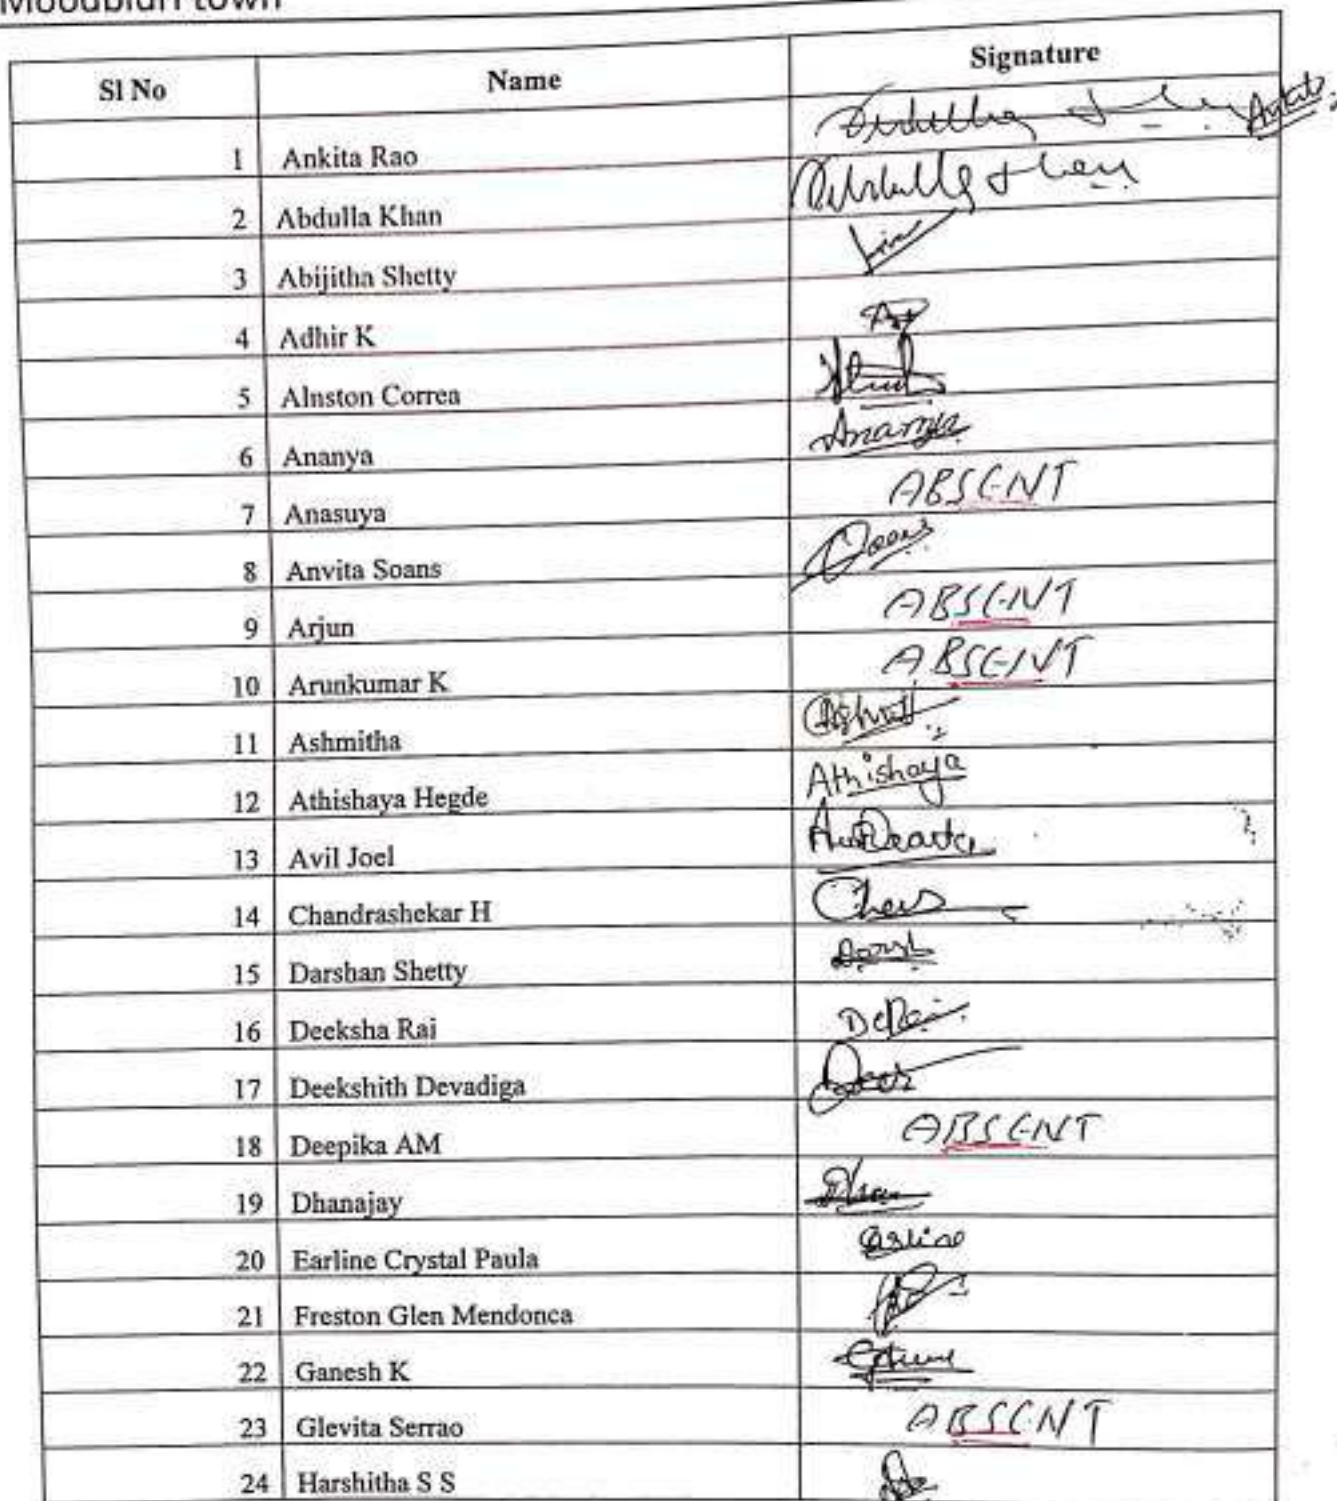 Moodbidri town
Sl No Name Signature
1 Ankita Rao
2 Abdulla Khan
3 Abijitha Shetty
4 Adhir K
5 Alnston Correa
6 Ananya Ananya
7 Anasuya ABSENT
8 Anvita Soans
9 Arjun ABSENT
10 Arunkumar K ABSENT
11 Ashmitha
12 Athishaya Hegde Athishaya
13 Avil Joel
14 Chandrashekar H
15 Darshan Shetty
16 Deeksha Rai
17 Deekshith Devadiga
18 Deepika AM ABSENT
19 Dhanajay
20 Earline Crystal Paula Earline
21 Freston Glen Mendonca
22 Ganesh K
23 Glevita Serrao ABSENT
24 Harshitha S S